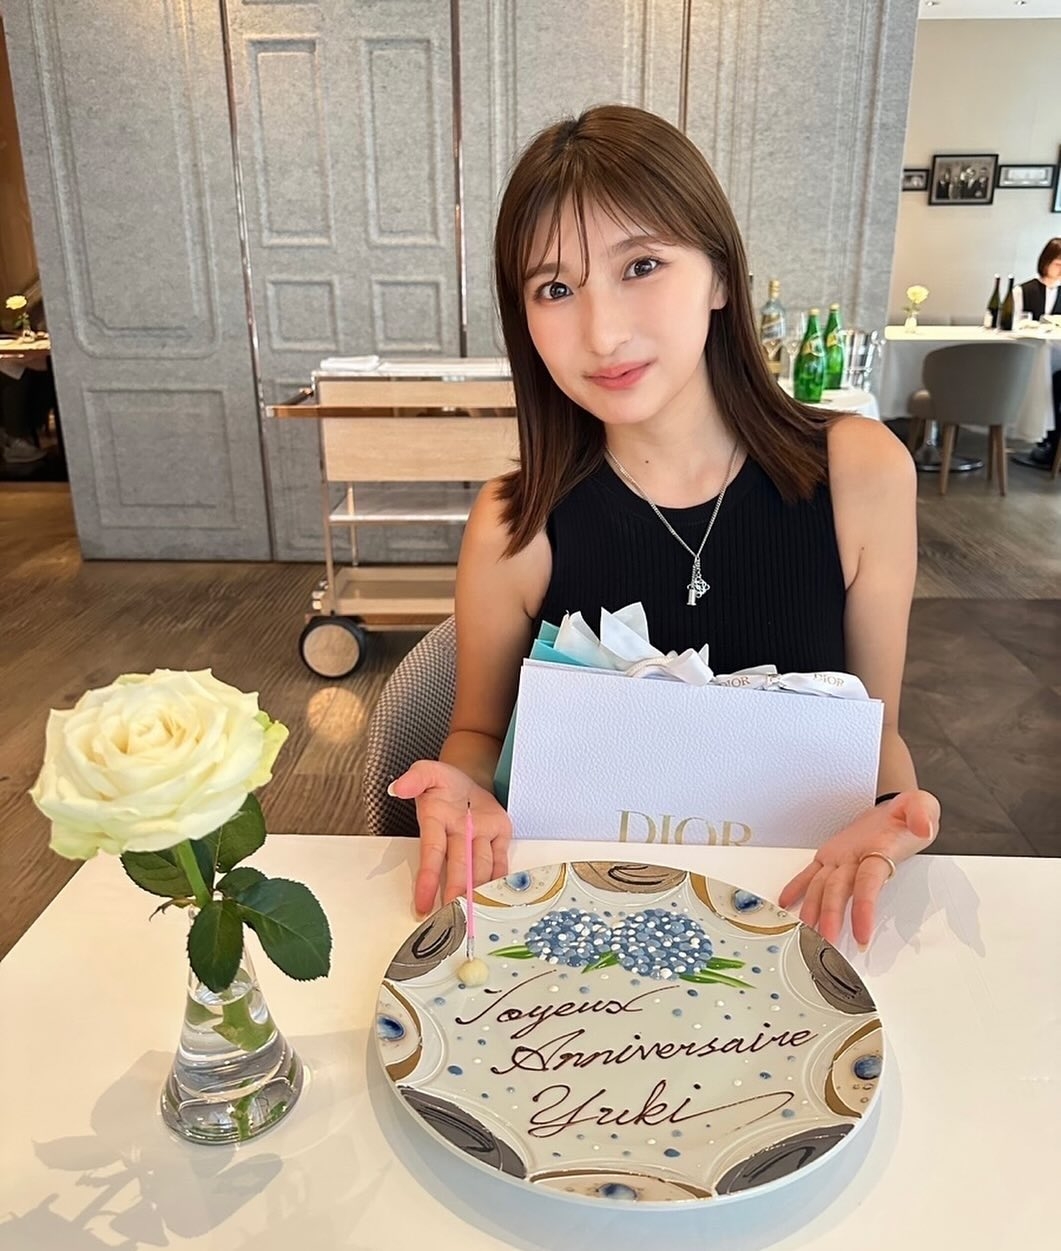 DIOR
DIOR
DIOR
Joyeux
Anniversaire
Yuki